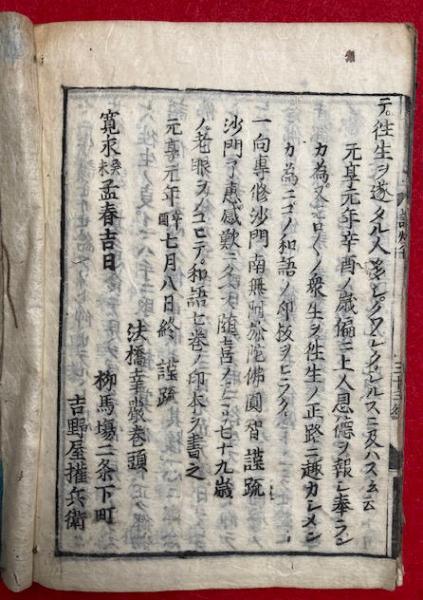 テ。往生ヲ遂タル人
ニ及ハス云云
元亨元年辛酉ノ歳偏ニ上人恩徳ヲ報シ奉ラン
カ為。又モロ〱ノ衆生ヲ往生ノ正路ニ趣カシメン
カ為ニコノ和語ノ印板ヲヒラク
一向専修沙門南無阿弥陀佛圓智謹疏
沙門了惠感歎ニタヘス随喜ノアマリ七十九歳
ノ老眼ヲノコヒテ。和語七巻ノ印本ヲ書之
元亨元年辛酉七月八日終謹疏
法橋幸嚴巻頭
寛永癸未孟春吉日
柳馬場二条下町
吉野屋権兵衛